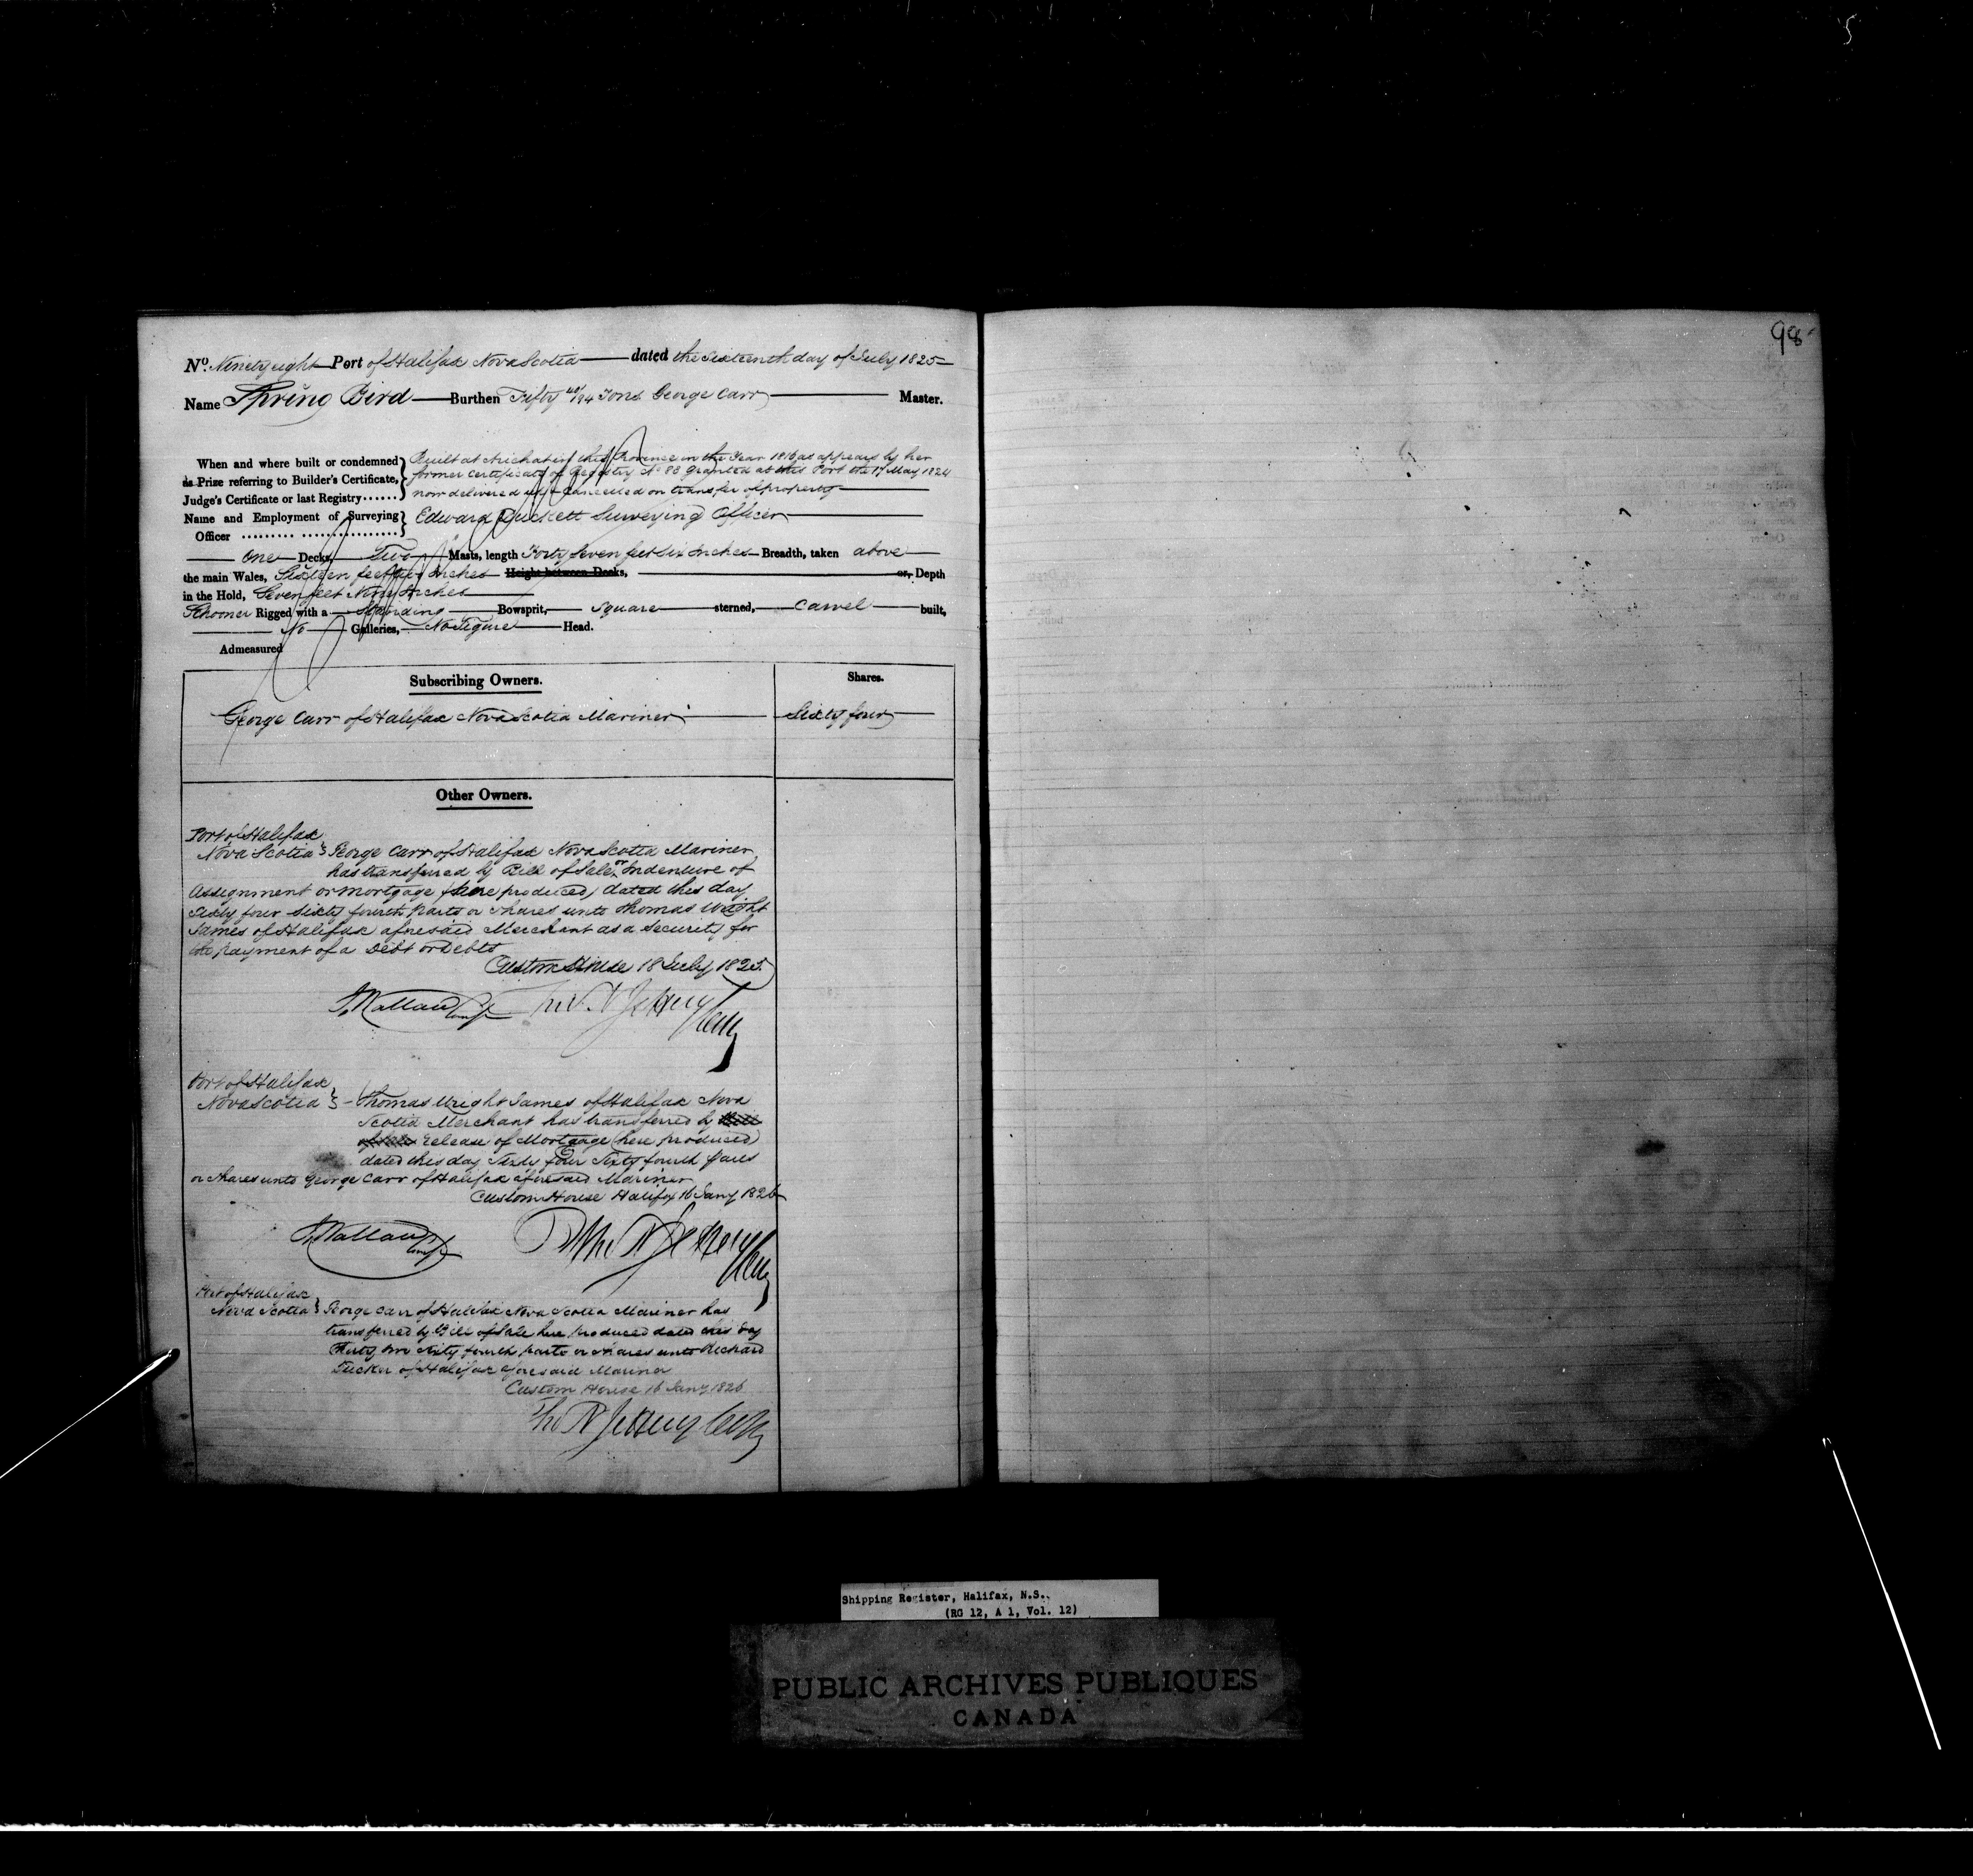 98
No. Ninety eight Port of Halifax Nova Scotia dated the Sixteenth day of July 1825
Name Spring Bird Burthen Fifty 40/94 Tons George Carr Master.
When and where built or condemned Built at Arichat in this Province in the Year 1816 as appears by her
as Prize referring to Builder's Certificate, former Certificate of Registry No 88 granted at this Port the 17 May 1824
Judge's Certificate or last Registry...... now delivered up & Cancelled on transfer of property
Name and Employment of Surveying Edward Duckett Surveying Officer
Officer
One Decks Two Masts, length Forty Seven feet Six Inches Breadth, taken above
the main Wales, Sixteen feet Inches Height between Decks, or, Depth
in the Hold, Seven feet Nine Inches
Schooner Rigged with a Standing Bowsprit, Square sterned, Carvel built,
No Galleries, No Figure Head.
Admeasured
Subscribing Owners. Shares.
George Carr of Halifax Nova Scotia Mariner Sixty four
Other Owners.
Port of Halifax
Nova Scotia } George Carr of Halifax Nova Scotia Mariner
has transferred by Bill of Sale or Indenture of
Assignment or mortgage (here produced) dated this day
Sixty four Sixty fourth parts or shares unto Thomas Wright
James of Halifax aforesaid Merchant as a Security for
the payment of a Debt or Debts
Custom House 18 July 1825
J Wallace Compr Thos N Jeffery Collr
Port of Halifax
Nova Scotia } Thomas Wright James of Halifax Nova
Scotia Merchant has transferred by Bill
of Sale release of Mortgage (here produced)
dated this day Sixty four Sixty fourth parts
or shares unto George Carr of Halifax aforesaid Mariner
Custom House Halifax 16 Jany 1826
J Wallace Compr Thos N Jeffery Collr
Port of Halifax
Nova Scotia } George Carr of Halifax Nova Scotia Mariner has
transferred by Bill of Sale here produced dated this day
Thirty two Sixty fourth parts or shares unto Richard
Tucker of Halifax aforesaid Mariner
Custom House 16 Jany 1826
Thos N Jeffery Collr
Shipping Register, Halifax, N.S..
(RG 12, A 1, Vol. 12)
PUBLIC ARCHIVES PUBLIQUES
CANADA